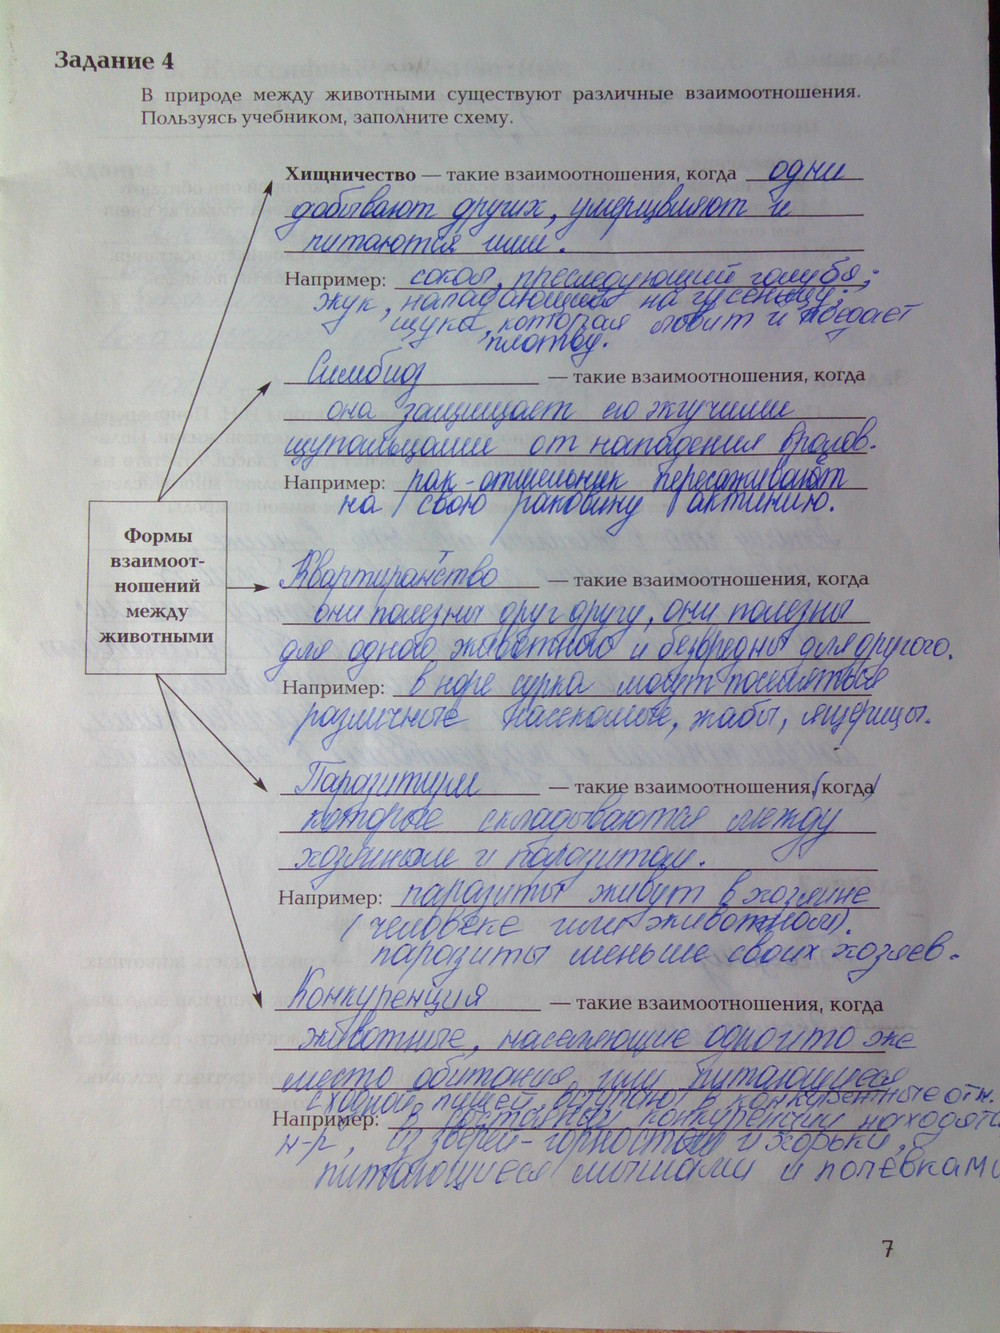 Задание 4
В природе между животными существуют различные взаимоотношения.
Пользуясь учебником, заполните схему.
Хищничество — такие взаимоотношения, когда одни
добывают других, умерщвляют и
питаются ими.
Например: сокол, преследующий голубя;
жук, нападающий на гусеницу;
щука, которая ловит и поедает
плотву.
Симбиоз — такие взаимоотношения, когда
она защищает его жгучими
щупальцами от нападения врагов.
Например: рак-отшельник пересаживает
на свою раковину актинию.
Формы
взаимоот-
ношений
между
животными
Квартиранство — такие взаимоотношения, когда
они полезны друг другу, они полезны
для одного животного и безвредны для другого.
Например: в норе сурка могут поселяться
различные насекомые, жабы, ящерицы.
Паразитизм — такие взаимоотношения, (когда)
которые складываются между
хозяином и паразитом.
Например: паразиты живут в хозяине
(человеке или животном).
паразиты меньше своих хозяев.
Конкуренция — такие взаимоотношения, когда
животные, населяющие одно и то же
место обитания или питающиеся
сходной пищей, вступают в конкурентные отн.
Например: в конкуренции находятся
н-р, из зверей - горностаи и хорьки,
питающиеся мышами и полёвками
7